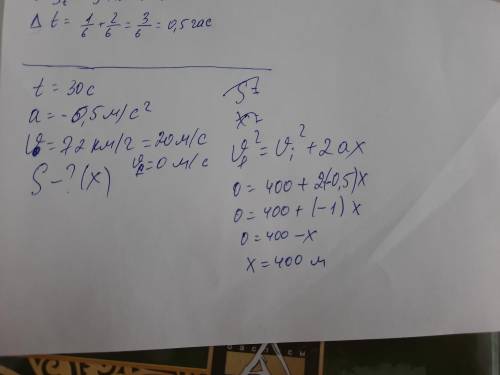 Δ t = 1/6 + 2/6 = 3/6 = 0,5 час
t = 30 с
a = -0,5 м/с²
V₀ = 72 км/г = 20 м/с
V₂ = 0 м/с
S - ? (x)
S =
x =
V₂² = V₁² + 2ax
0 = 400 + 2(-0,5)x
0 = 400 + (-1) x
0 = 400 - x
x = 400 м